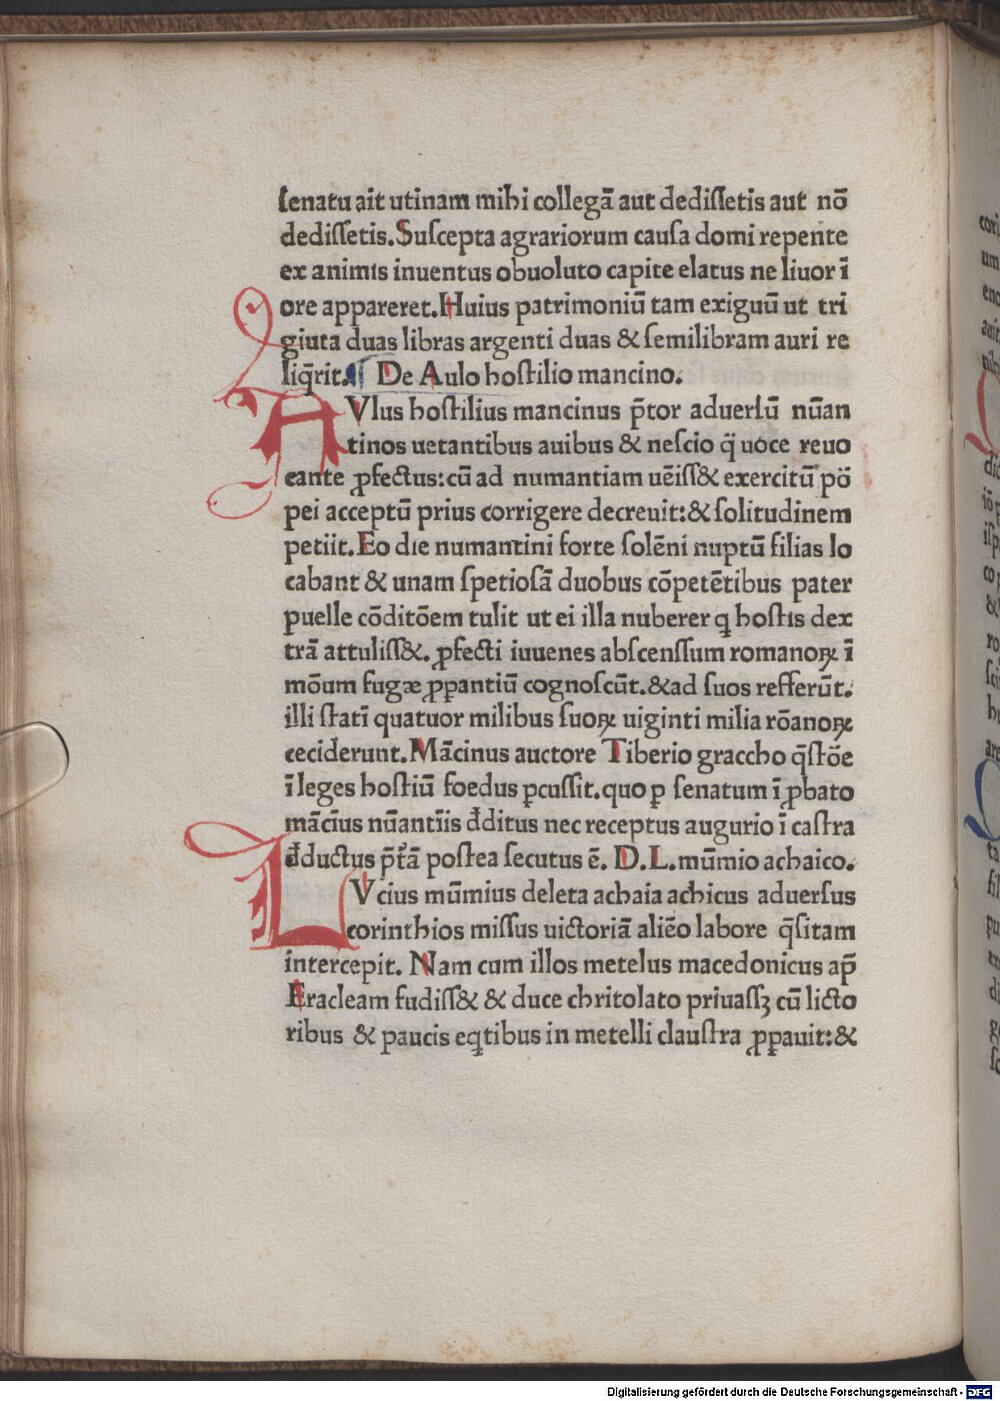 ſenatu ait utinam mihi collegā aut dediſſetis aut nō
dediſſetis. Suſcepta agrariorum cauſa domi repente
ex animis inuentus obuoluto capite elatus ne liuor ī
ore appareret. Huius patrimoniū tam exiguū ut tri
giuta duas libras argenti duas & ſemilibram auri re
liq̄rit. ¶ De Aulo hoſtilio mancino.
AVlus hoſtilius mancinus p̄tor aduerſū nūan
tinos uetantibus auibus & neſcio q̄ uoce reuo
cante ꝓfectus: cū ad numantiam uēiſſ& exercitū pō
pei acceptū prius corrigere decreuit: & ſolitudinem
petiit. Eo die numantini forte ſolēni nuptū filias lo
cabant & unam ſpetioſā duobus cōpetētibus pater
puelle cōditōem tulit ut ei illa nuberer q hoſtis dex
trā attuliſſ&. ꝓfecti iuuenes abſcenſſum romanoꝝ ī
mōum fugæ ꝓpantiū cognoſcūt. & ad ſuos refferūt.
illi ſtatī quatuor milibus ſuoꝝ uiginti milia rōanoꝝ
ceciderunt. Mācinus auctore Tiberio graccho q̄ſtōe
ī leges hoſtiū foedus ꝑcuſſit. quo ꝑ ſenatum ī ꝓbato
mācīus nūantīis d̄ditus nec receptus augurio ī caſtra
d̄ductus p̄t̄ā poſtea ſecutus ē. D. L. mūmio achaico.
LVcius mūmius deleta achaia achicus aduerſus
corinthios miſſus uictoriā aliēo labore q̄ſitam
intercepit. Nam cum illos metelus macedonicus ap̄
Eracleam fudiſſ& & duce chritolato priuaſſꝫ cū licto
ribus & paucis eq̄tibus in metelli clauſtra ꝓpauit: &
Digitalisierung gefördert durch die Deutsche Forschungsgemeinschaft - DFG